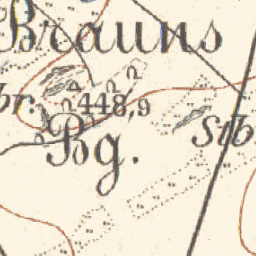 Brauns
br.
448,9
Stb
Bg.